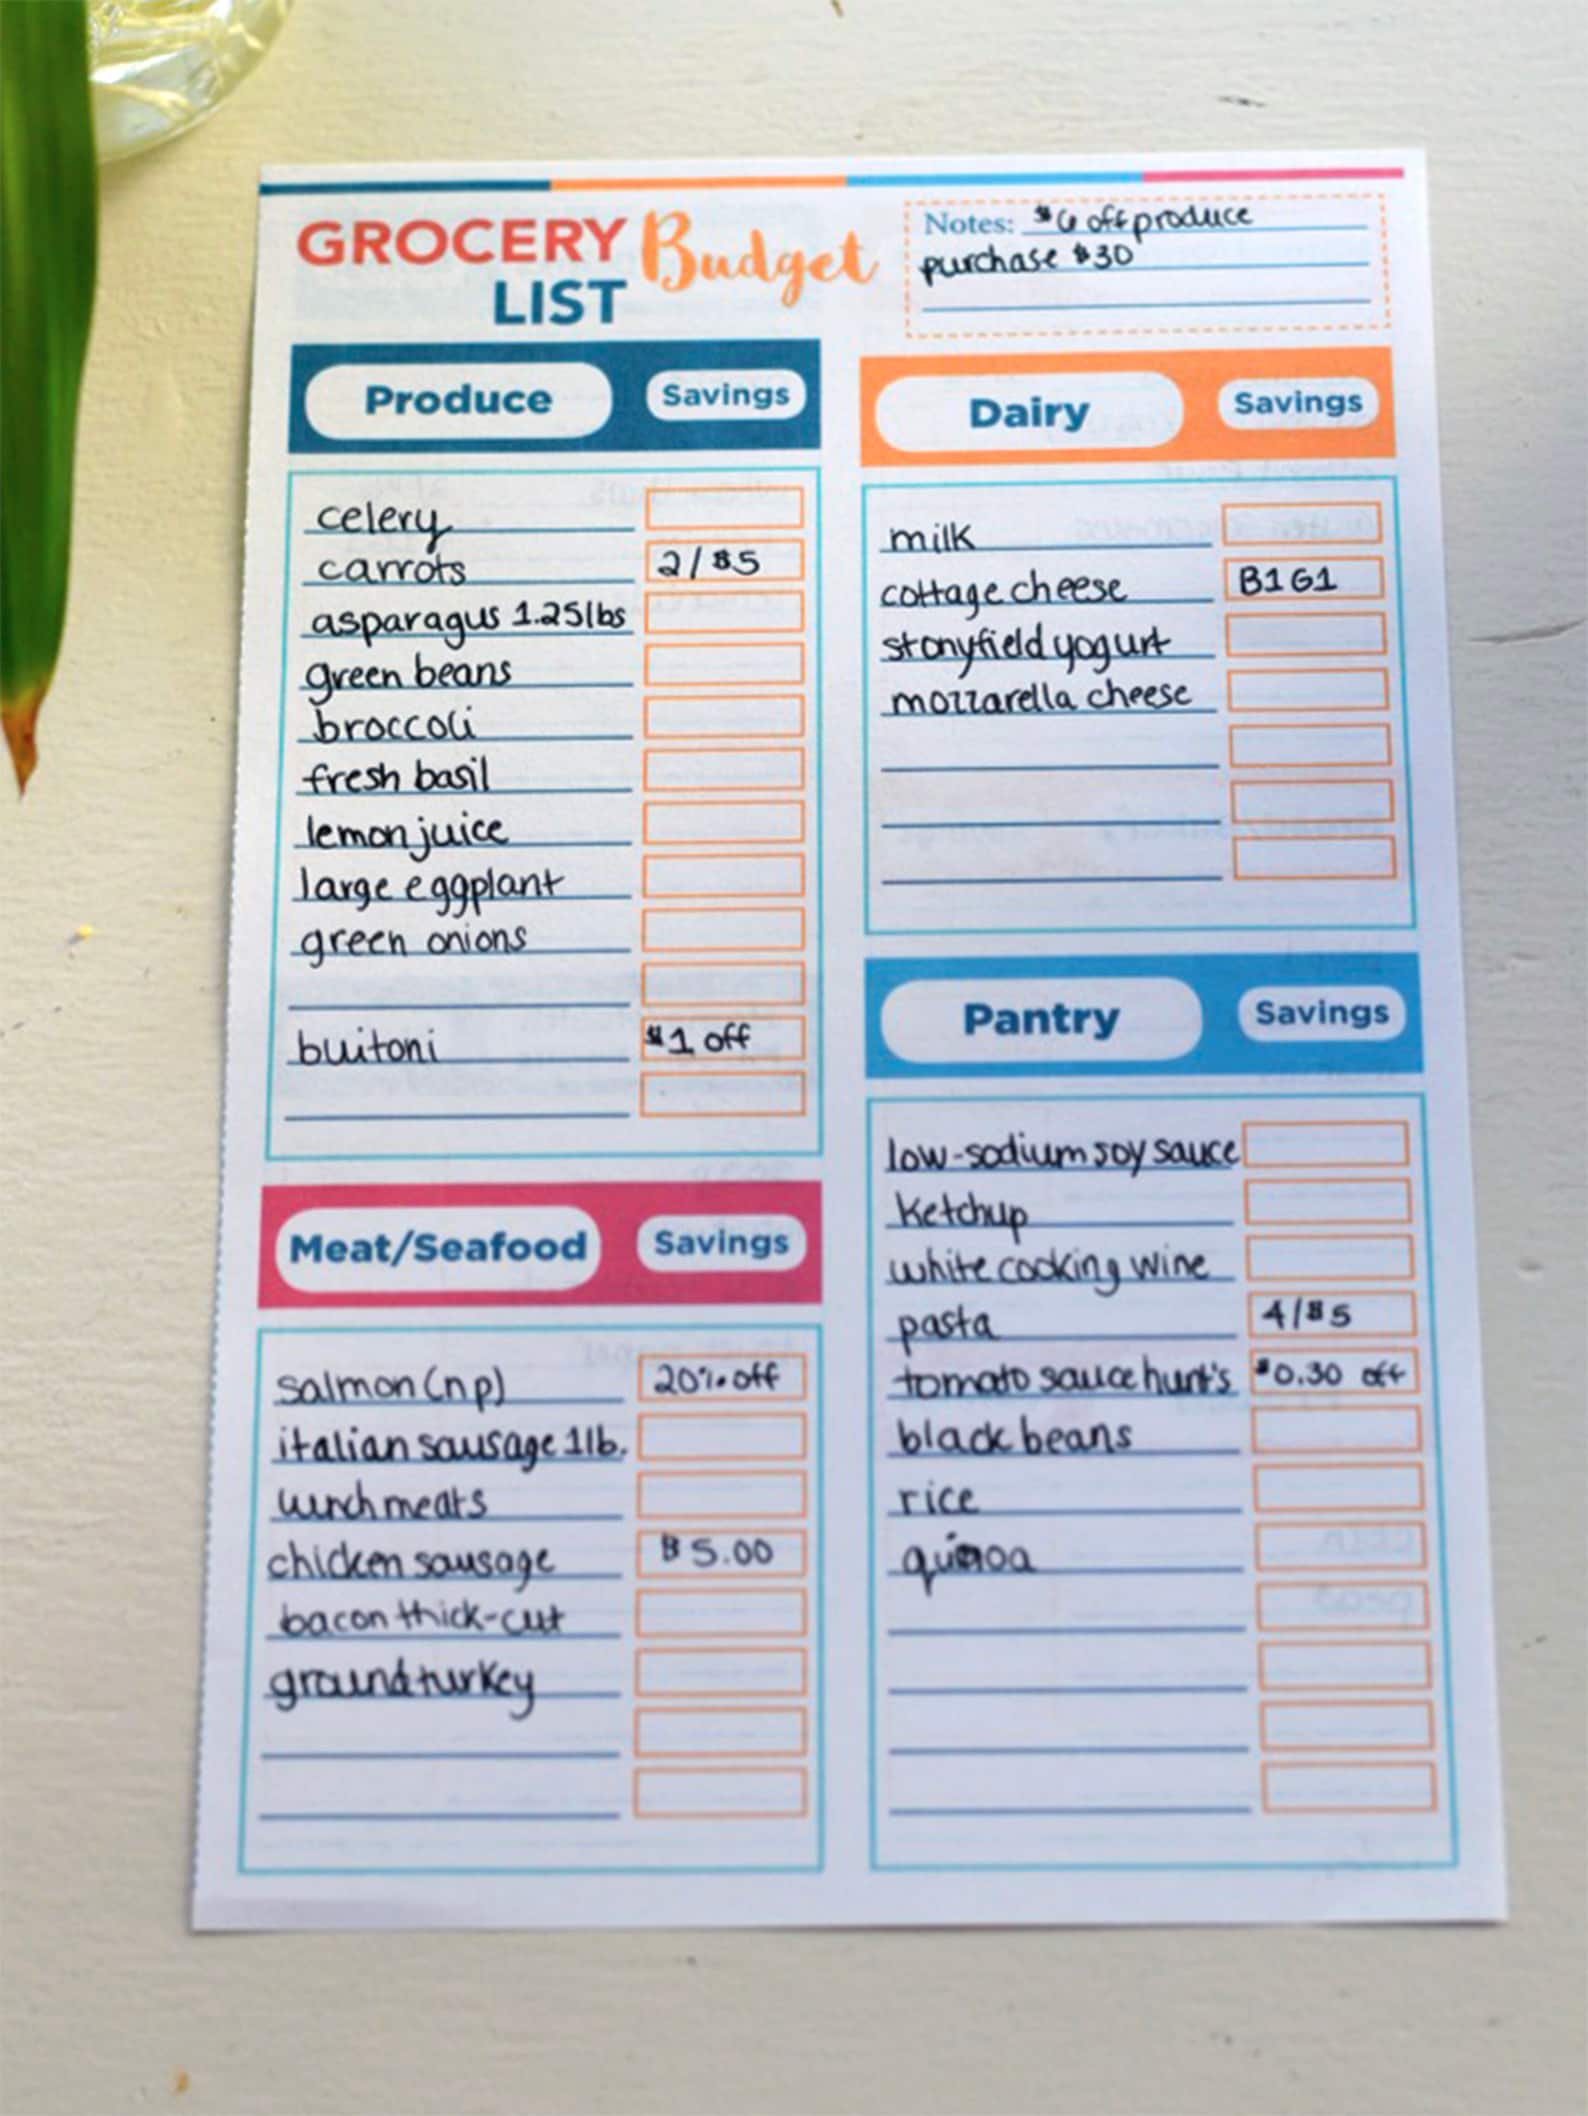 GROCERY Budget
LIST
Notes: $6 off produce
purchase $30
Produce Savings
celery
carrots 2/$5
asparagus 1.25lbs
green beans
broccoli
fresh basil
lemon juice
large eggplant
green onions
buitoni $1 off
Meat/Seafood Savings
salmon (np) 20% off
italian sausage 1lb.
lunch meats
chicken sausage $5.00
bacon thick-cut
ground turkey
Dairy Savings
milk
cottage cheese B1G1
stonyfield yogurt
mozzarella cheese
Pantry Savings
low-sodium soy sauce
Ketchup
white cooking wine
pasta 4/$5
tomato sauce hunt's $0.30 off
black beans
rice
quinoa